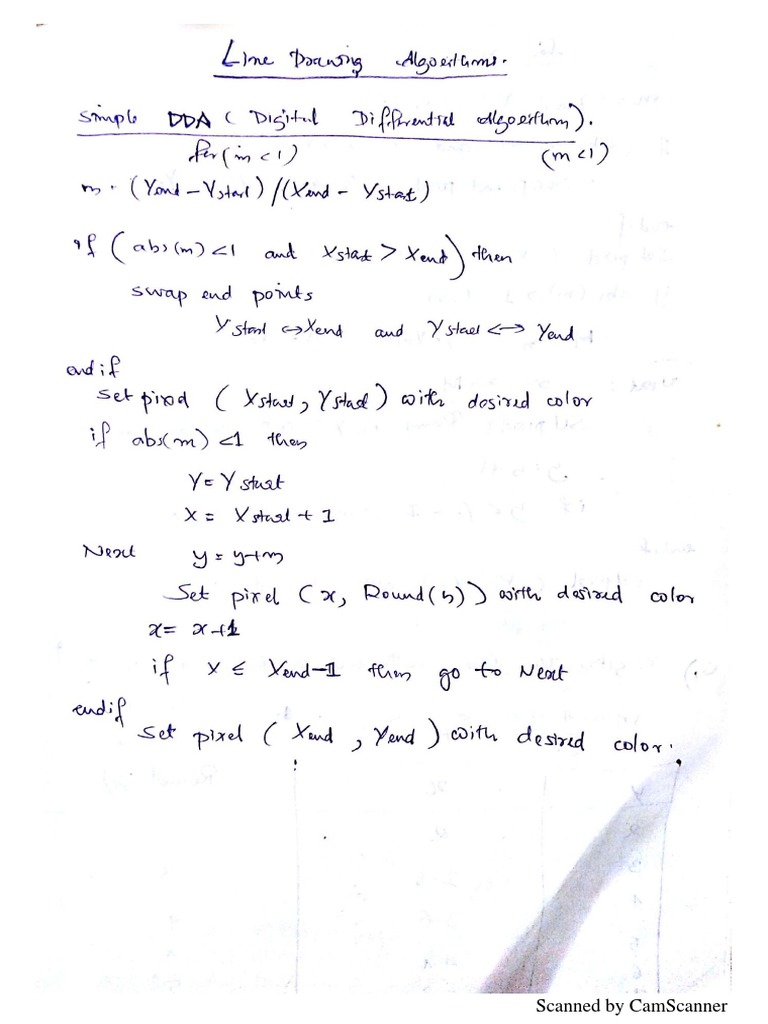 Line Drawing Algorithms.
Simple DDA ( Digital Differential Algorithm).
for (m < 1) (m < 1)
m = (Yend - Ystart) / (Xend - Ystart)
if ( abs(m) < 1 and Xstart > Xend ) then
swap end points
Xstart ↔ Xend and Ystart ↔ Yend
endif
Set pixel ( Xstart, Ystart ) with desired color
if abs(m) < 1 then
Y = Ystart
X = Xstart + 1
Next y = y+m
Set pixel (x, Round(y)) with desired color
x = x+1
if X ≤ Xend-1 then go to Next
endif
Set pixel ( Xend , Yend ) with desired color.
Scanned by CamScanner